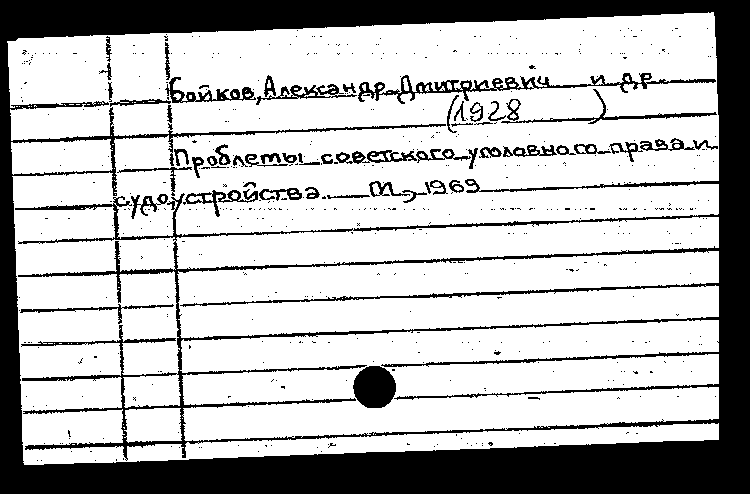 Бойков, Александр Дмитриевич и др.
(1928 )
Проблемы советского уголовного права и
судоустройства. М, 1969